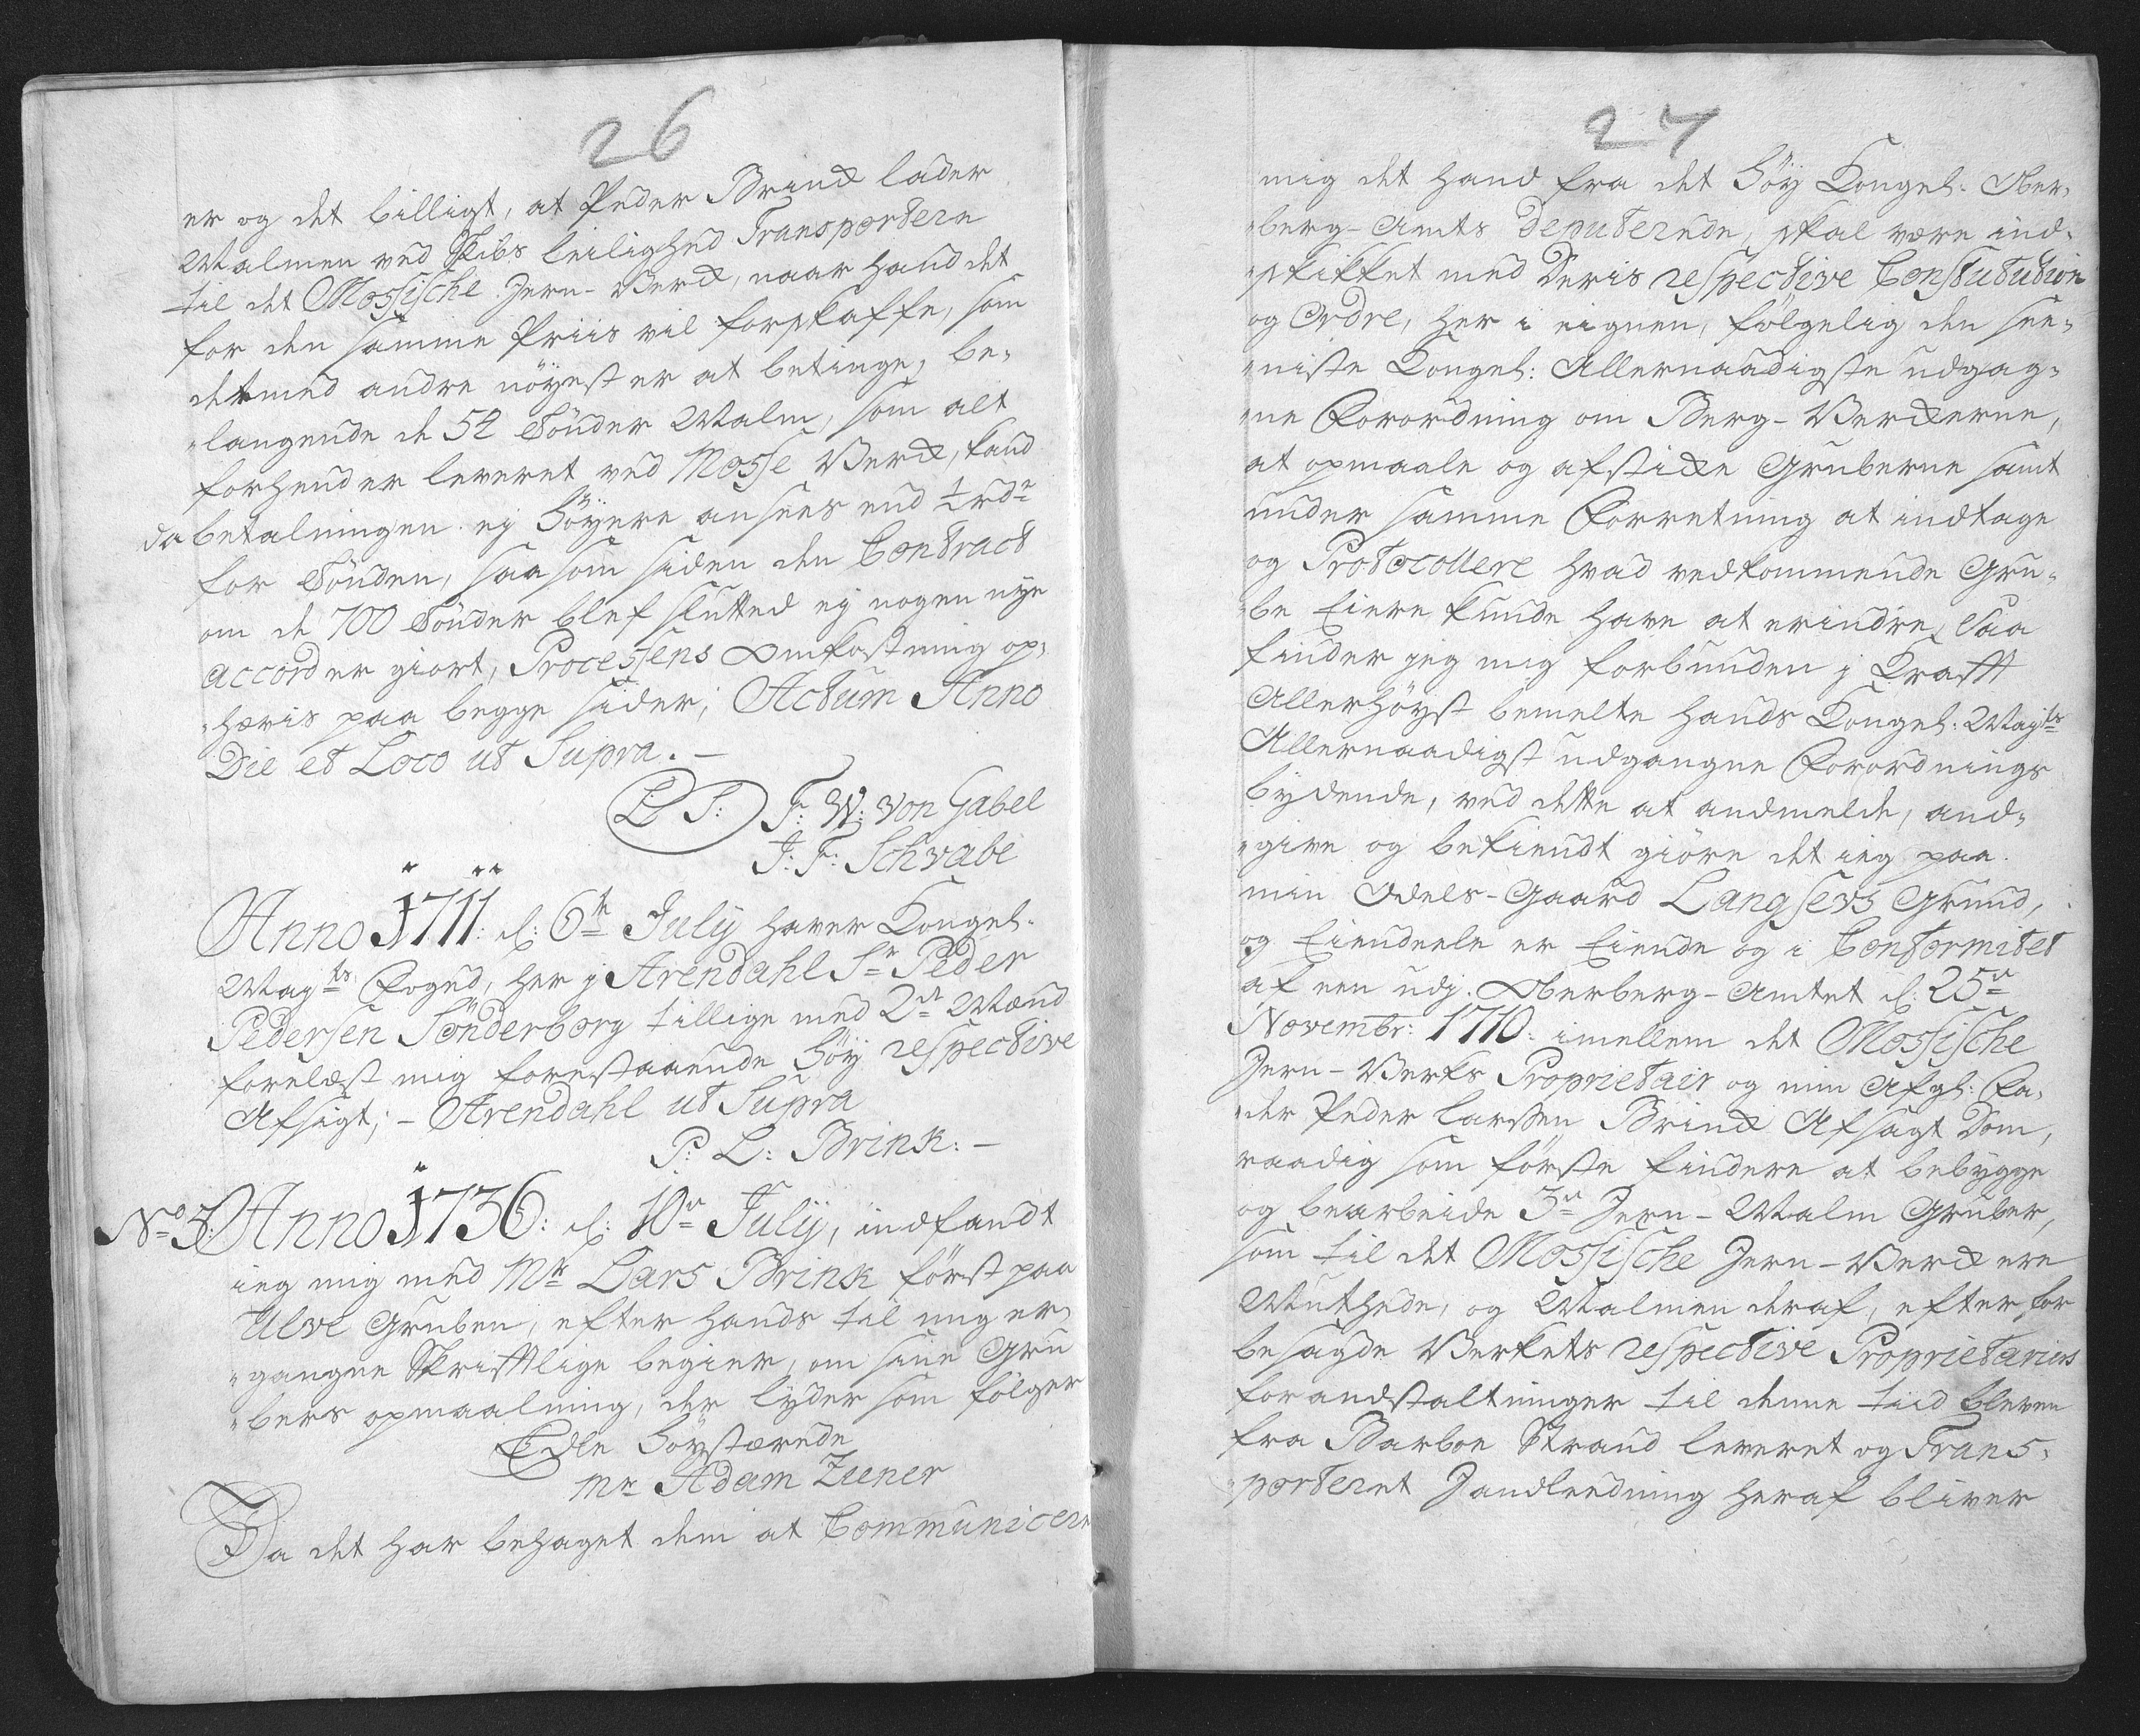 26
er og det billigt, at Peder Brinck lader
Malmen ved Skibs leilighed Transportere
til det Mossische Jern-Verck, naar hand det
for den samme Priis vil forskaffe, som
det med andre nöyest er at betinge, be„
„langende de 52 Tönder Malm, som alt
forhen er leveret ved Mosse Verck, kand
da betalningen ej höyere ansees end ½ rdr
for Tönden, saasom siden den Contract
om de 700 Tönder blef slutted ej nogen nye
accord er giort, Processens Omkostning op„
„hævis paa begge sider; Actum Anno
Die et Loco ut Supra. —
L: S: F: W: von Gabel
J: F: Schwabe
Anno 1711: d: 6te July haver Kongel:
Mayts Foged, her j Arendahl Sr Peder
Pedersen Sönderborg tillige med 2de Mænd
forelæst mig forestaaende höy respective
Afsigt; – Arendahl ut Supra
P: L: Brink: –
No 5: Anno 1736: d: 10de July, indfandt
ieg mig med Mr Lars Brink först paa
Ulve Gruben, efter hands til mig er„
„gangne Skrifftlige begier, om sine Gru
„bers opmaalning, der lyder som fölger
Edle Höystærede
Mr Adam Ziener
Da det har behaget dem at Communicere
27
mig det hand fra det höy Kongel: Ober„
„berg-Amts Deputerede, skal være ind„
„skikket med Deris respective Constitution
og Ordre, her i eignen, fölgelig den see„
„niste Kongel: Allernaadigste udgag„
„ne Forordning om Berg-Verckerne,
at opmaale og afstikke Gruberne samt
under samme Forretning at indtage
og Protocollere hvad vedkommende Gru„
„be Eiere kunde have at erindre, Saa
finder jeg mig forbunden j Krafft
Allerhöyst bemelte hands Kongel: Mayts
Allernaadigst udgangne Forordnings
bydende, ved dette at andmelde, and„
„give og bekiendt giöre det ieg paa
min Odels-Gaard Langsevs Grund,
og Eiendeele er Eiende og i Conformitet
af een udj Oberberg-Amtet d: 25de
Novembr: 1710: imellem det Mossische
Jern-Verks Proprietair og min Afgl: Fa„
„der Peder Larssen Brinck Afsagt Dom,
raadig som förste findere at bebygge
og bearbeide 3de Jern-Malm Gruber,
som til det Mossische Jern-Verck ere
Muthede, og Malmen deraf, efter for
besagde Verkets respective Proprietarius
for andstaltninger til denne tiid bleven
fra Barboe Strand leveret og Trans„
„porteret Jandleedning heraf bliver